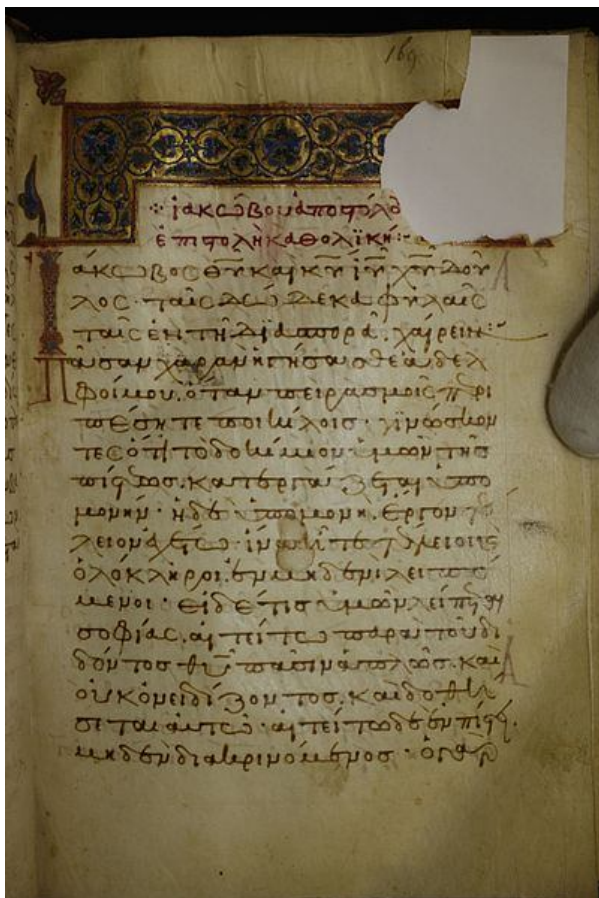 169
ἰακώβου ἀποστόλο
ἐπιστολὴ καθολική:
Ἰάκωβος θυ καὶ κυ ιυ χυ δοῦ
λος· ταῖς δώδεκα φυλαῖς
ταῖς ἐν τῇ διασπορᾷ. χαίρειν:
Πᾶσαν χαρὰν ἡγήσασθε ἀδελ
φοί μου. ὅταν πειρασμοῖς περι
πέσητε ποικίλοις· γινώσκον
τες ὅτι τὸ δοκίμιον ὑμῶν τῆς
πίστεως. κατεργάζεται ὑπο
μονήν· ἡ δὲ ὑπομονὴ. ἔργον τέ
λειον ἐχέτω· ἵνα ἦτε τέλειοι
ὁλόκληροι. ἐν μηδενὶ λειπό
μενοι· εἰ δέ τις ὑμῶν λείπεται
σοφίας. αἰτείτω παρὰ τοῦ δι
δόντος θυ πᾶσιν ἁπλῶς. καὶ
οὐκ ὀνειδίζοντος. καὶ δοθή
σεται αὐτῷ· αἰτείτω δὲ ἐν πίστει.
μηδὲν διακρινόμενος· ὁ γὰρ